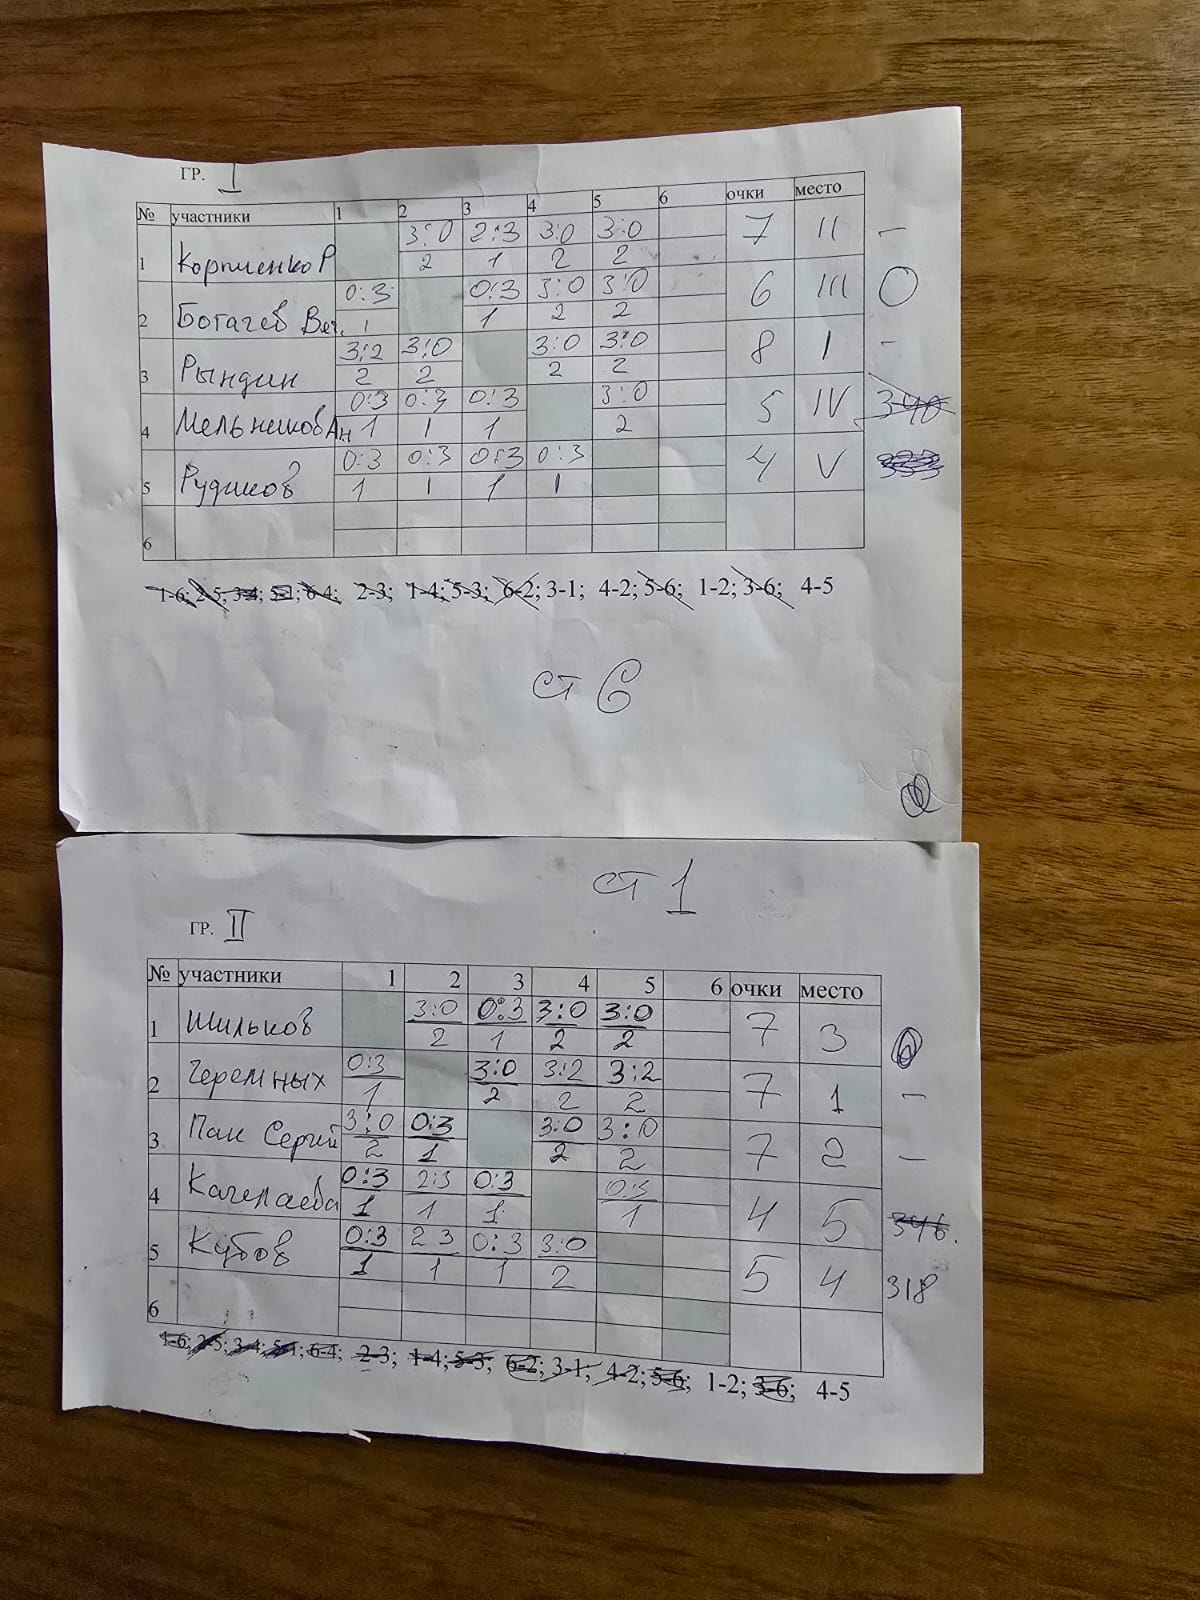 ГР. I
№ участники 1 2 3 4 5 6 очки место
1 Корпиенко Р 3:0 2:3 3:0 3:0 7 II –
2 1 2 2
2 Богачев Веч. 0:3 0:3 3:0 3:0 6 III 0
1 1 2 2
3 Рындин 3:2 3:0 3:0 3:0 8 I -
2 2 2 2
4 Мельников Ан 0:3 0:3 0:3 3:0 5 IV 340
1 1 1 2
5 Рудиков 0:3 0:3 0:3 0:3 4 V
1 1 1 1
6
1-6; 2-5; 3-4; 5-1; 6-4; 2-3; 1-4; 5-3; 6-2; 3-1; 4-2; 5-6; 1-2; 3-6; 4-5
ст 6
ст 1
ГР. II
№ участники 1 2 3 4 5 6 очки место
1 Шильков 3:0 0:3 3:0 3:0 7 3
2 1 2 2
2 Черемных 0:3 3:0 3:2 3:2 7 1 –
1 2 2 2
3 Пак Сергей 3:0 0:3 3:0 3:0 7 2 –
2 1 2 2
4 Качепаева 0:3 2:3 0:3 0:3 4 5 346.
1 1 1 1
5 Кубов 0:3 2 3 0:3 3:0 5 4 318
1 1 1 2
6
1-6; 2-5; 3-4; 5-1; 6-4; 2-3; 1-4; 5-3; 6-2; 3-1; 4-2; 5-6; 1-2; 3-6; 4-5